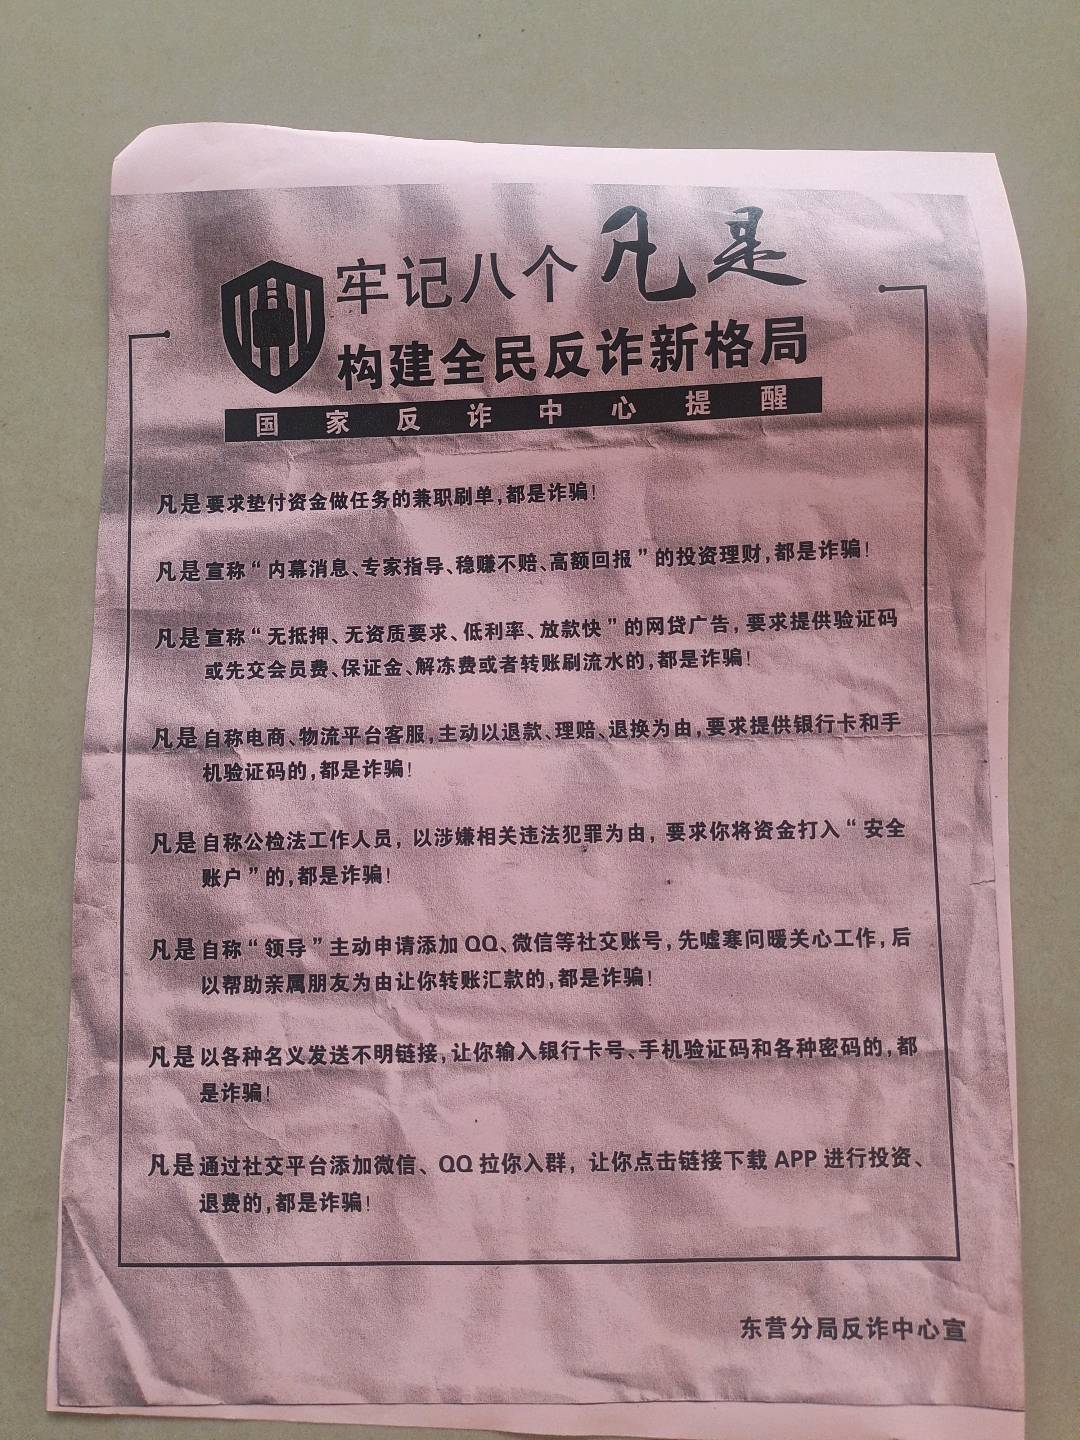 牢记八个凡是
构建全民反诈新格局
国家反诈中心提醒
凡是要求垫付资金做任务的兼职刷单,都是诈骗!
凡是宣称“内幕消息、专家指导、稳赚不赔、高额回报”的投资理财,都是诈骗!
凡是宣称“无抵押、无资质要求、低利率、放款快”的网贷广告,要求提供验证码
或先交会员费、保证金、解冻费或者转账刷流水的,都是诈骗!
凡是自称电商、物流平台客服,主动以退款、理赔、退换为由,要求提供银行卡和手
机验证码的,都是诈骗!
凡是自称公检法工作人员,以涉嫌相关违法犯罪为由,要求你将资金打入“安全
账户”的,都是诈骗!
凡是自称“领导”主动申请添加QQ、微信等社交账号,先嘘寒问暖关心工作,后
以帮助亲属朋友为由让你转账汇款的,都是诈骗!
凡是以各种名义发送不明链接,让你输入银行卡号、手机验证码和各种密码的,都
是诈骗!
凡是通过社交平台添加微信、QQ拉你入群,让你点击链接下载APP进行投资、
退费的,都是诈骗!
东营分局反诈中心宣